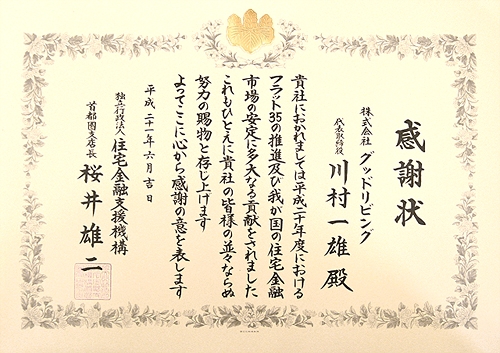 感謝状
株式会社 グッドリビング
代表取締役 川村一雄 殿
貴社におかれましては平成二十年度における
フラット35の推進及び我が国の住宅金融
市場の安定に多大なる貢献をされました
これもひとえに貴社の皆様の並々ならぬ
努力の賜物と存じ上げます
よってここに心から感謝の意を表します
平成二十一年六月吉日
独立行政法人 住宅金融支援機構
首都圏支店長 桜井雄二